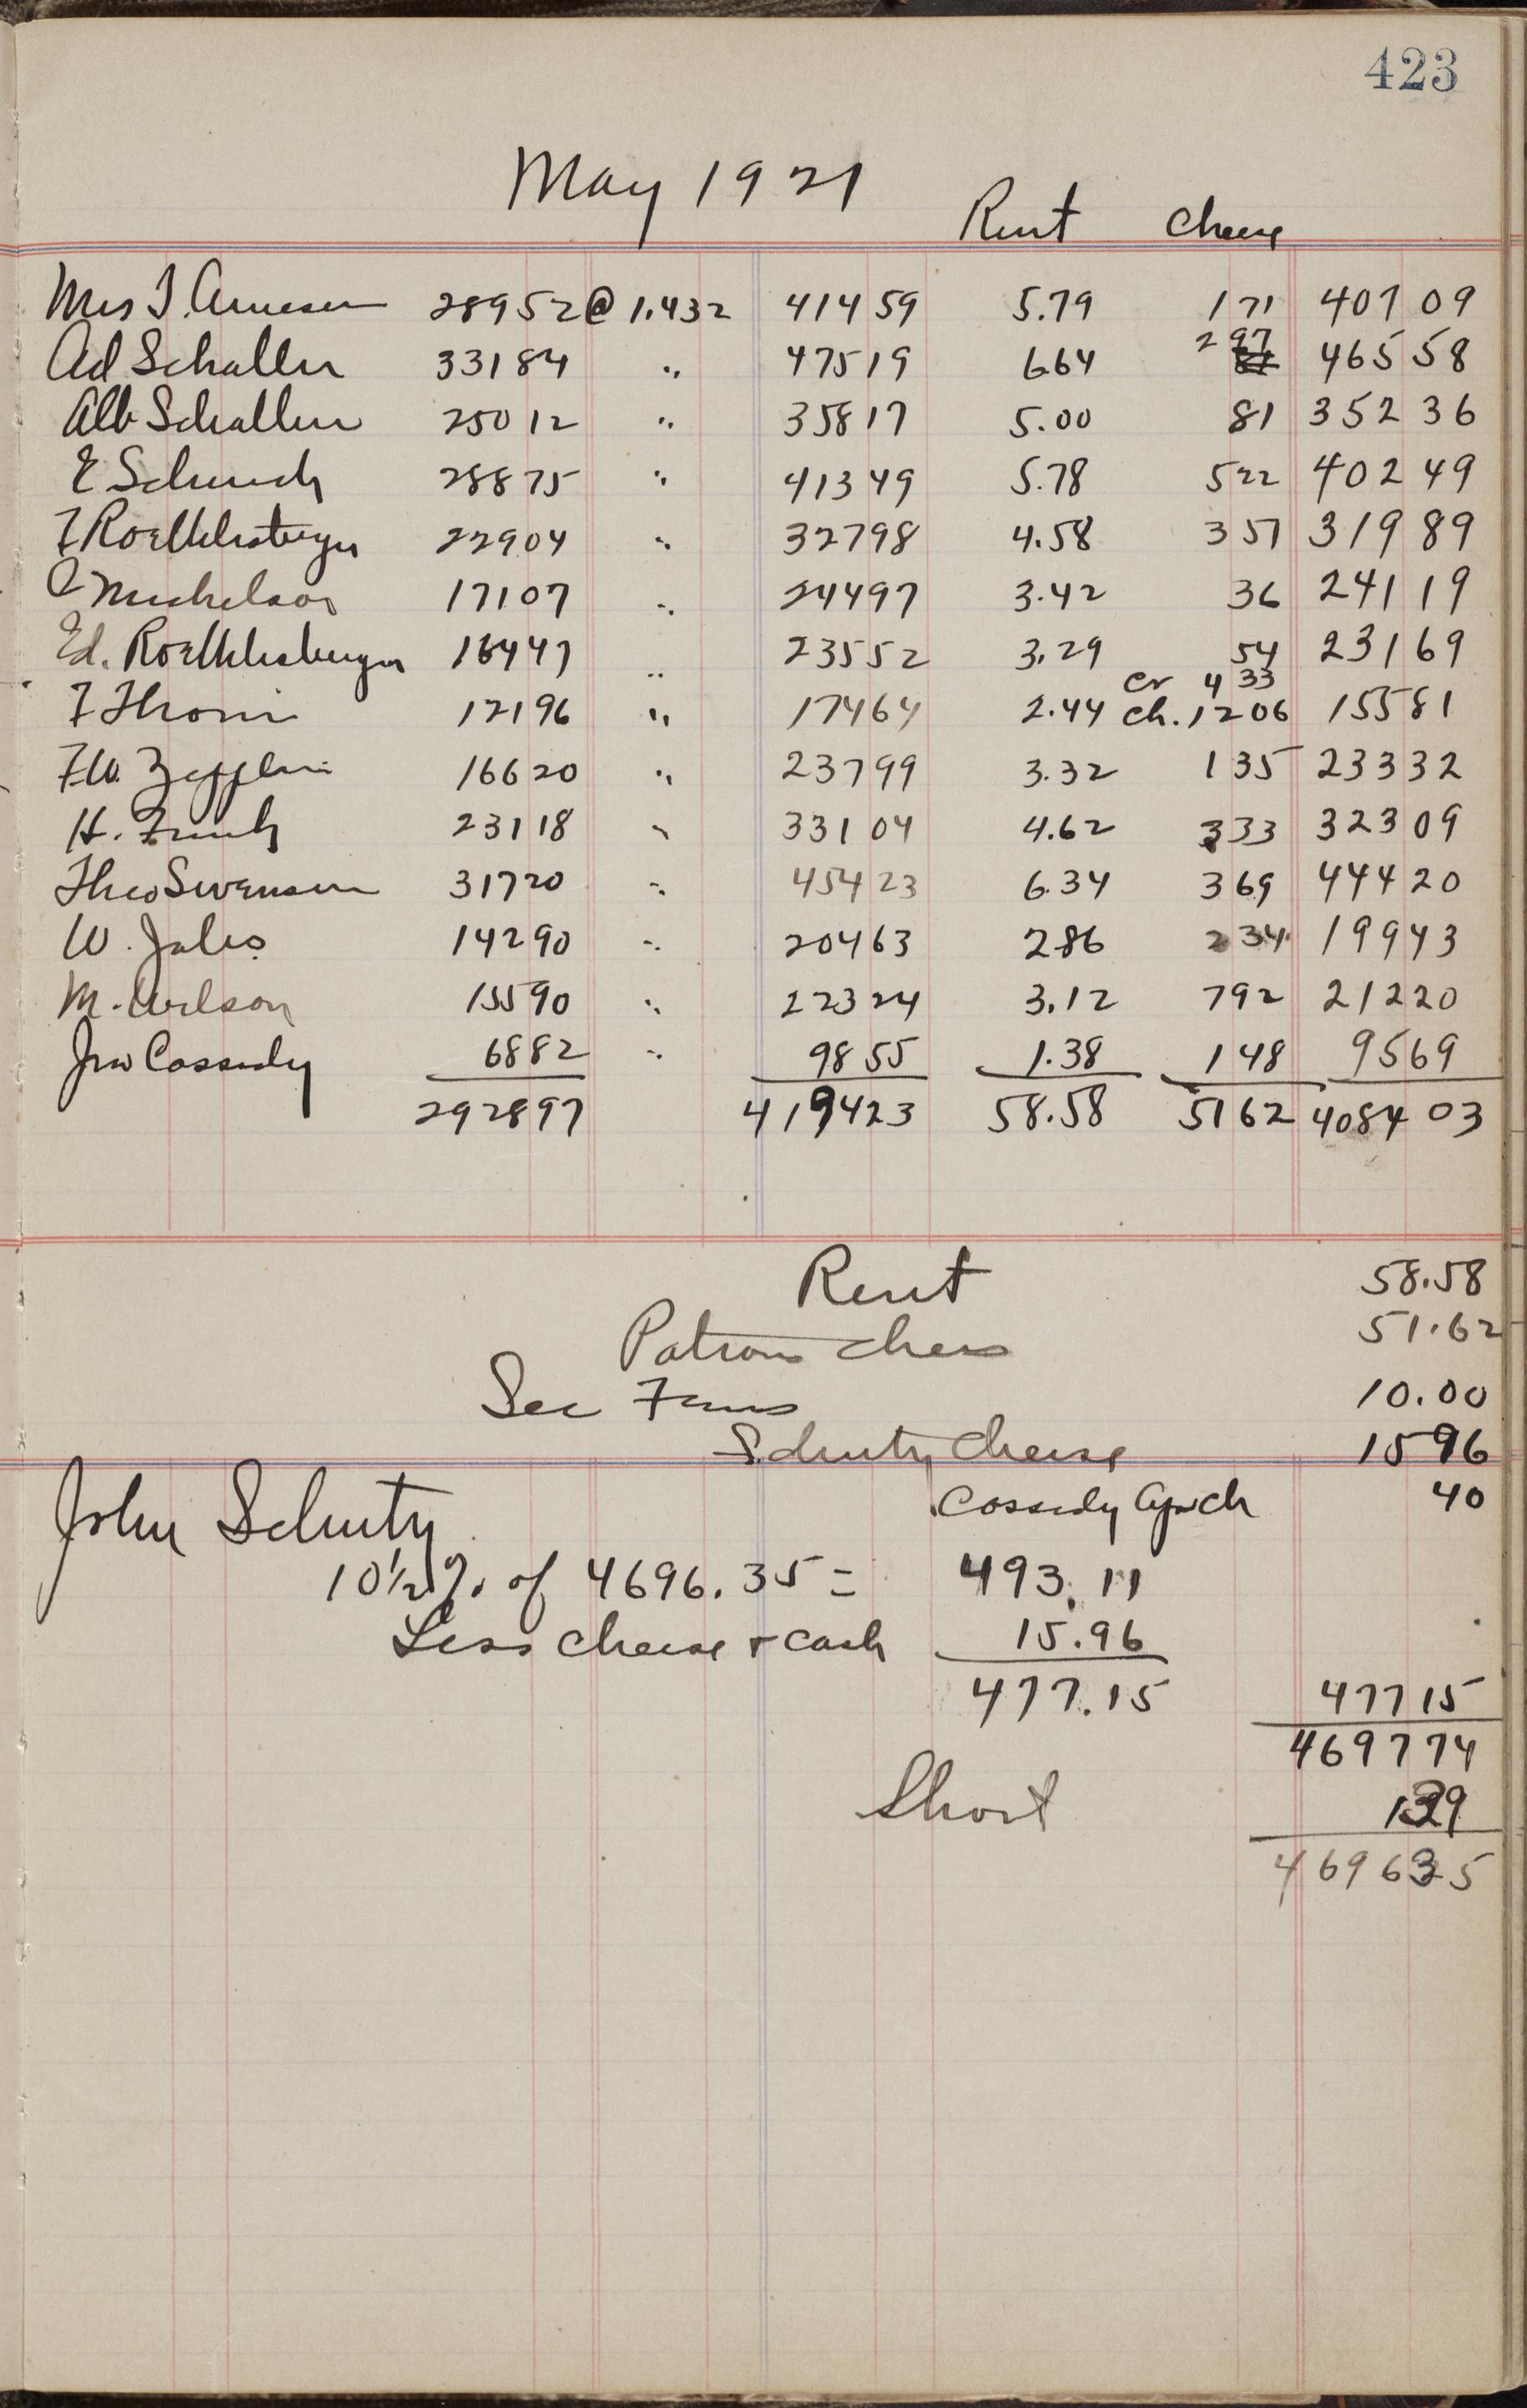 423
May 1921
Rent Cheese
Mrs J. Arneson 28952 @ 1.432 414 59 5.79 171 407 09
Ad Schaller 33184 " 475 19 6.64 297 465 58
Alb Schaller 25012 " 358 17 5.00 81 352 36
E Schuech 28875 " 413 49 5.78 522 402 49
F Roethlisberger 22904 " 327 98 4.58 351 319 89
Michelson 17107 " 244 97 3.42 36 241 19
Ed. Roethlisberger 16447 " 235 52 3.29 54 231 69
Cr 4 33
F Thronii 12196 " 174 64 2.44 Ch. 12 06 155 81
F.W. Zepplin 16620 " 237 99 3.32 135 233 32
H. Frank 23118 " 331 04 4.62 333 323 09
Theo Swenson 31720 " 454 23 6.34 369 444 20
W. Jules 14290 " 204 63 2.86 2 34 199 43
M. Wilson 15590 " 223 24 3.12 792 212 20
Jno Cassidy 6882 " 98 55 1.38 148 95 69
292897 4194 23 58.58 51 62 4084 03
Rent 58.58
Patrons chees 51.62
Sec 10.00
Schutz Cheese 15 96
Cassidy 40
John Schutz
10½% of 4696.35 = 493.11
Less cheese + cash 15.96
477.15 477 15
4697 74
Short 1 39
4696 35